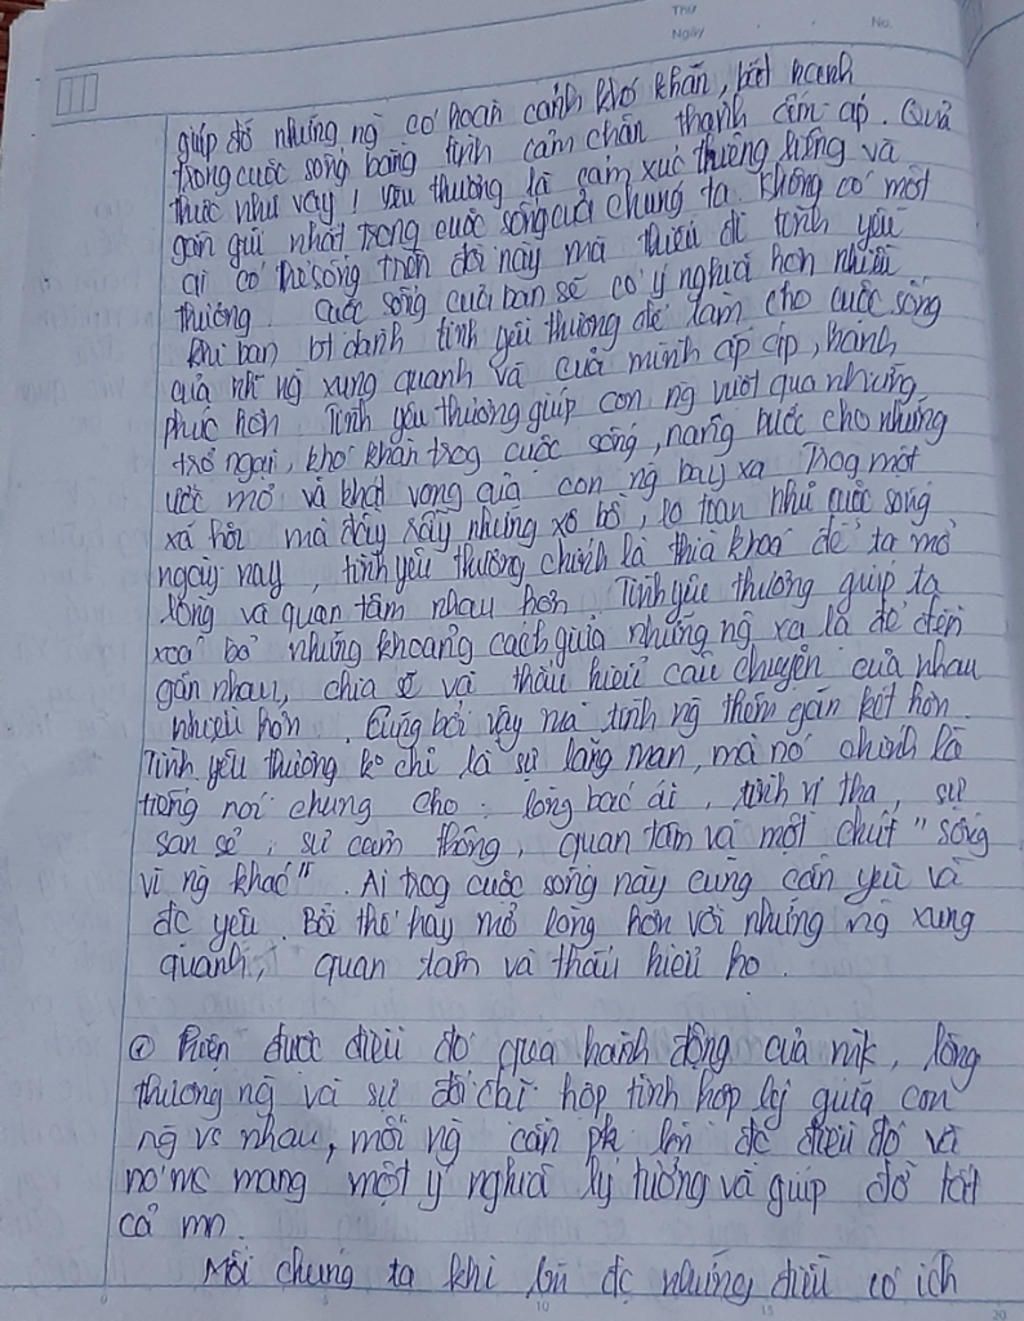 Thứ
Ngày No.
giúp đỡ những ng có hoàn cảnh khó khăn, bất hạnh
trong cuộc sống bằng tình cảm chân thành ấm áp. Quả
thực như vậy! yêu thương là cảm xúc thiêng liêng và
gần gũi nhất trong cuộc sống của chúng ta. Không có một
ai có thể sống trên đời này mà thiếu đi tình yêu
thương. Cuộc sống của bạn sẽ có ý nghĩa hơn nhiều
khi bạn bt dành tình yêu thương để làm cho cuộc sống
của nh ng xung quanh và của mình ấp áp, hạnh
phúc hơn. Tình yêu thương giúp con ng vượt qua những
trở ngại, khó khăn trog cuộc sống, nâng bước cho những
ước mơ và khát vọng của con ng bay xa. Trog một
xã hội mà đầy rẫy những xô bồ, lo toan như cuộc sống
ngày nay, tình yêu thương chính là thìa khoá để ta mở
lòng và quan tâm nhau hơn. Tình yêu thương giúp ta
xoá bỏ những khoảng cách giữa những ng xa lạ để đến
gần nhau, chia sẻ và thấu hiểu câu chuyện của nhau
nhiều hơn. Cũng bởi vậy mà tình ng thêm gắn kết hơn.
Tình yêu thương ko chỉ là sự lãng mạn, mà nó chính là
tiếng nói chung cho: lòng bác ái, tính vị tha, sự
san sẻ, sự cảm thông, quan tâm và một chút "sống
vì ng khác". Ai trog cuộc sống này cũng cần yêu và
đc yêu. Bởi thế hãy mở lòng hơn với những ng xung
quanh, quan tâm và thấu hiểu họ.
được điều đó qua hành động của mk, lòng
thương ng và sự đối chí hợp tình hợp lý giữa con
ng vs nhau, mỗi ng cần đc điều đó và
nó ms mang một ý nghĩa lý tưởng và giúp đỡ tất
cả mn.
Mỗi chúng ta khi đc những điều có ích
0 5 10 15 20